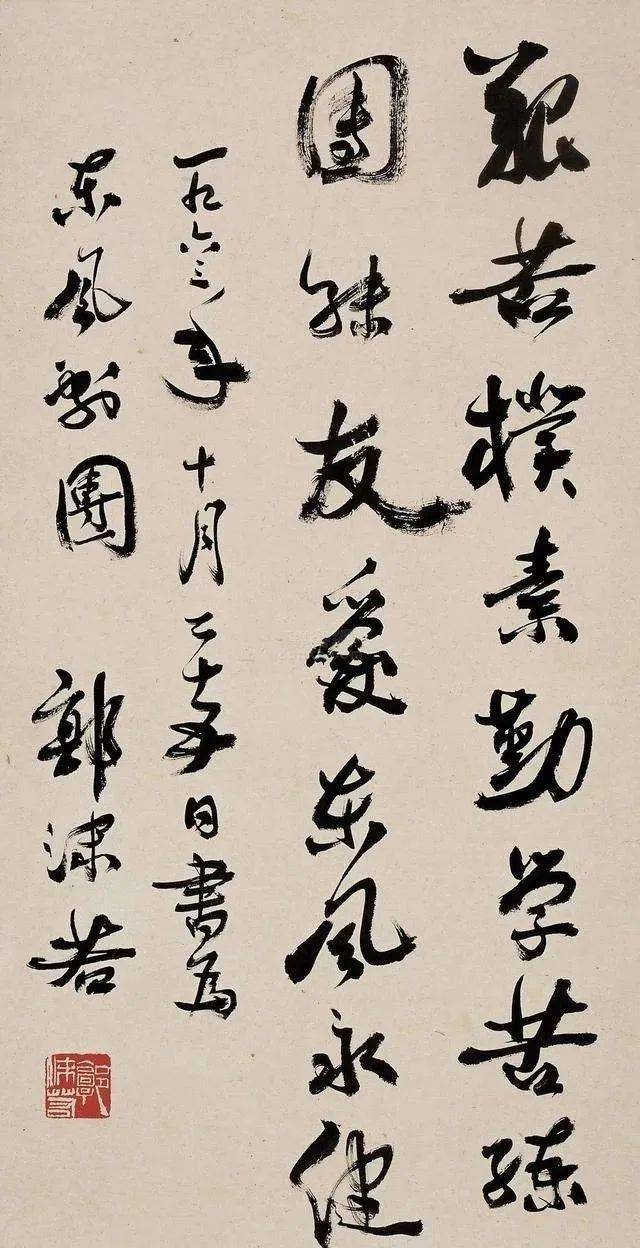 艱苦樸素勤学苦練
團結友愛東風永健
一九六三年十月二十五日書為
東風劇團 郭沫若
郭沫若